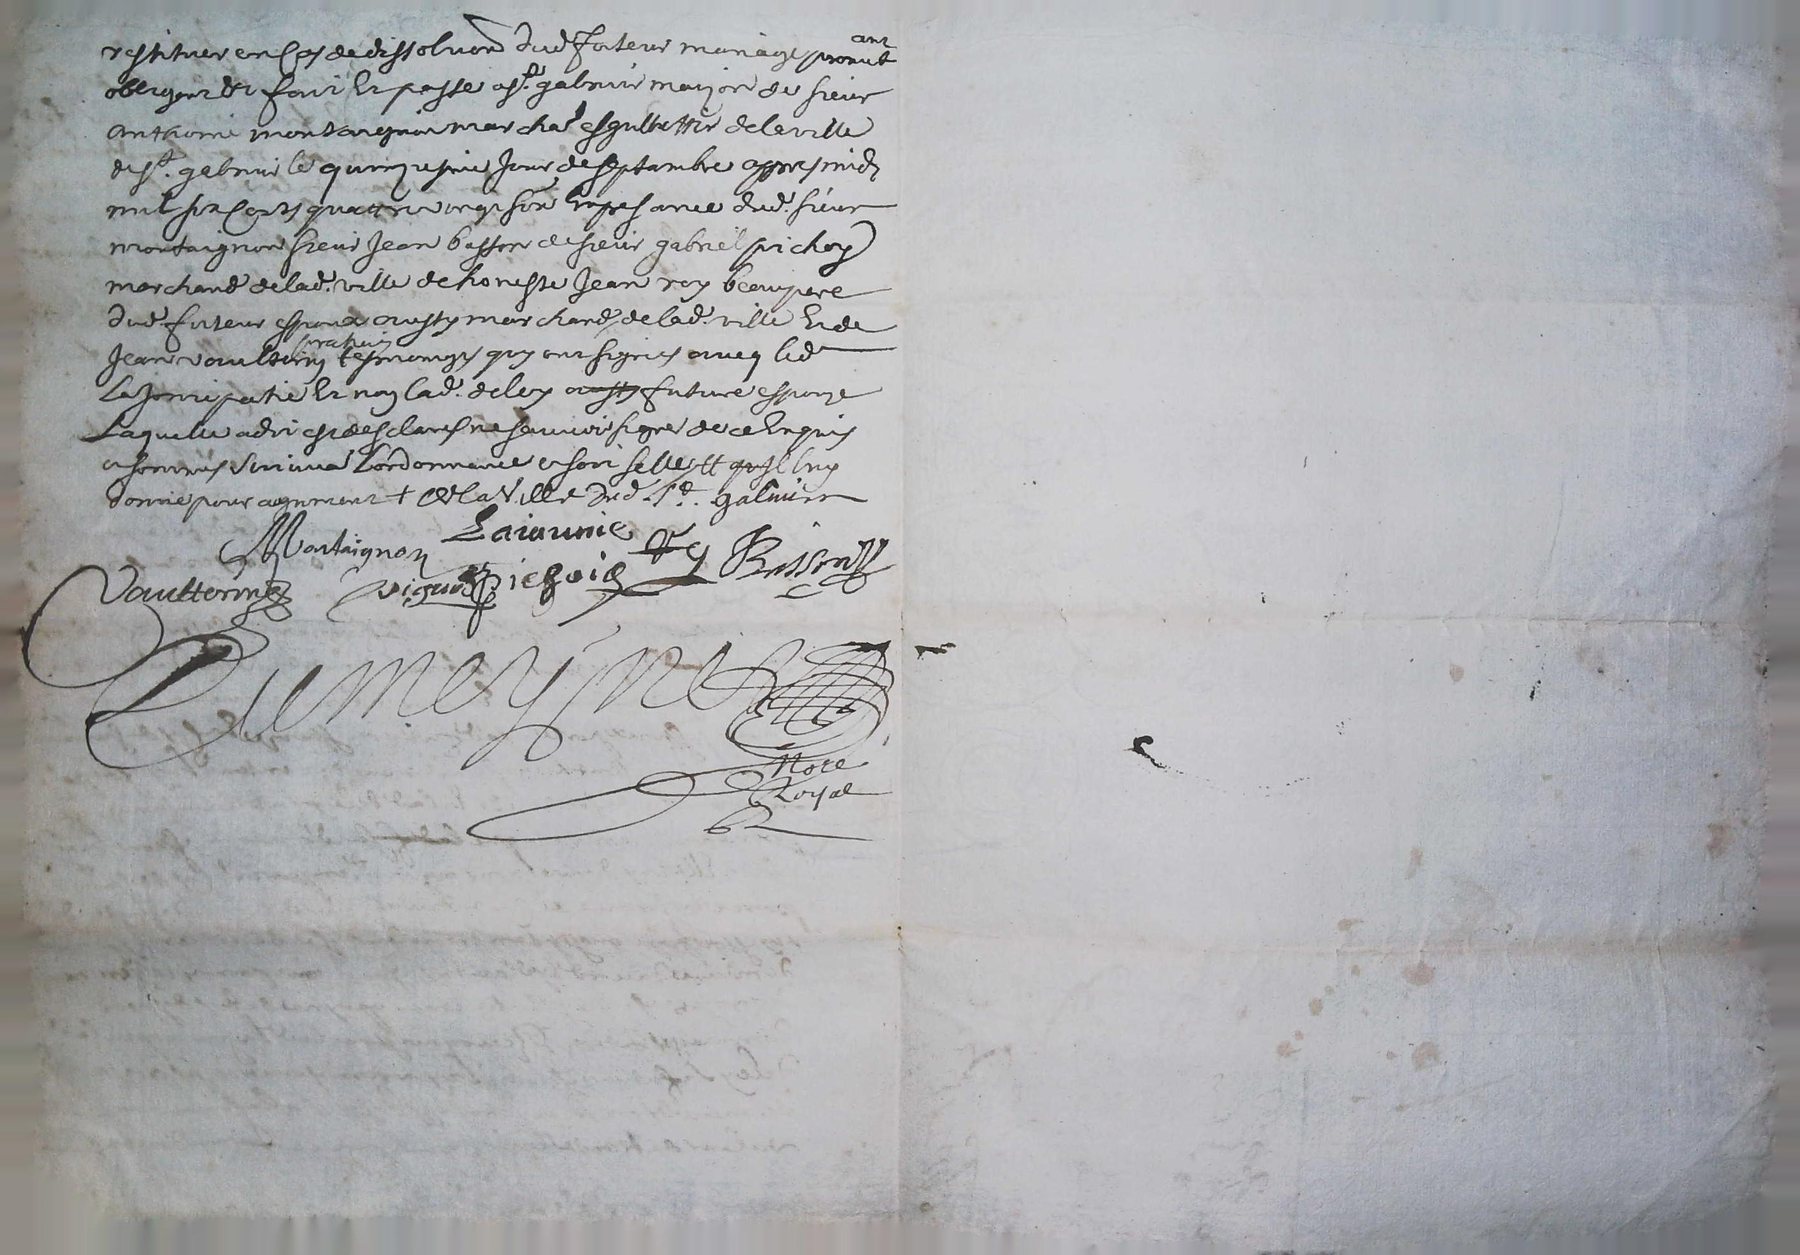 restituer en Cas de dissolution dud futeur mariage ant promet
obligent &c faict Et passe a st. galmier maizon de sieur
anthoine montaignon marchad de la ville
de st. galmier le quinziesme Jour de septambre appres midy
mil six Cents quattre vingt six En presance dud. sieur
montaignon sieur Jean basson de sieur gabriel pichoy
marchand de lad. ville de honneste Jean rey beaupere
dud futeur espoux aussy marchand de lad. ville Et de
Jean vaultorin praticien tesmoingts quy ont signes avecq led
La partie Et non lad. deley aussy future espouze
Laquelle a dict et desclares ne scavoir signer de ce Enquis
et somme suivant Lordonnance
donne pour agrement + de la Ville dud. st. galmier
Montaignon Laiaunie Rey Besson
Vaultorin pichoid
Dumeynet
Nore
Royal